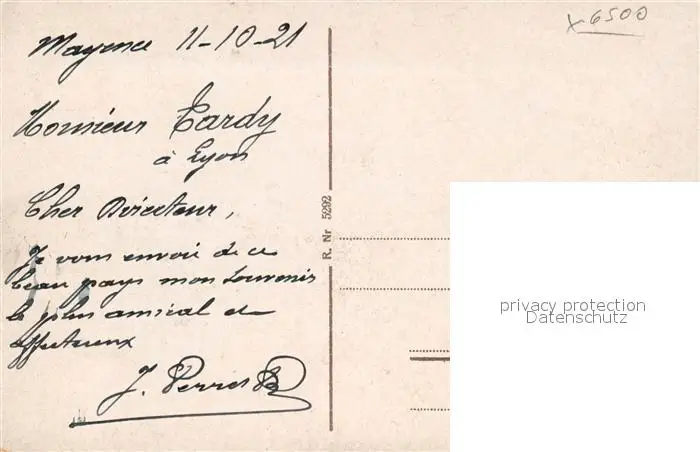 Mayence 11-10-21
x 6500
Monsieur Tardy
à Lyon
Cher Directeur,
Je vous envoie de ce
beau pays mon souvenir
le plus amical et
affectueux
J. Perret
R. Nr. 5292
privacy protection
Datenschutz